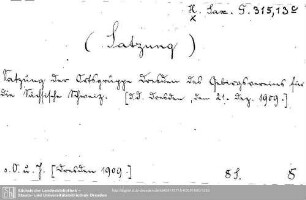 H. Sax. G. 315,13
(Satzung)
Satzung der Ortsgruppe Dresden des Gebirgsvereins für
die Sächsische Schweiz. [d.d. Dresden, den 21. Dez. 1909.]
o. O. u. J. [Dresden 1909.] 8 S. 8